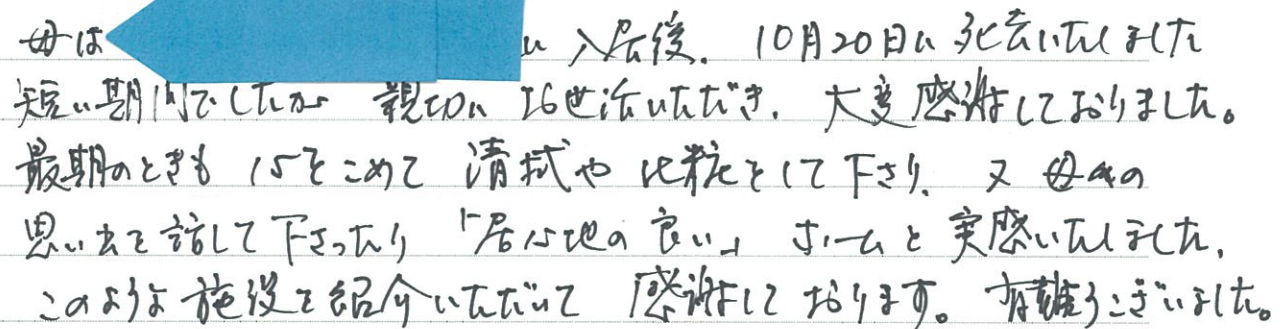 母は に入居後、10月20日に死去いたしました
短い期間でしたが 親切にお世話いただき、大変感謝しておりました。
最期のときも 心をこめて 清拭や化粧をして下さり、又 母の
思い出を話して下さったり 「居心地の良い」 ホームと実感いたしました。
このような施設を紹介いただいて 感謝しております。有難うございました。